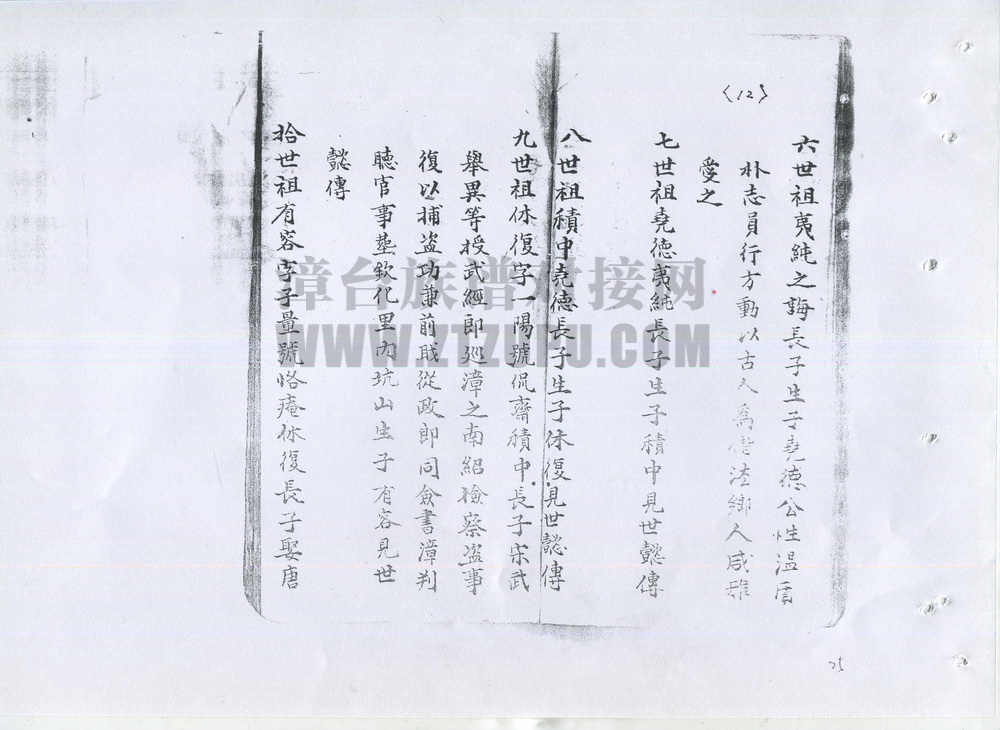 〈12〉
六世祖夷純之誨長子生子堯德公性溫厚
朴志員行方動以古人為 法鄉人咸雅
愛之
七世祖堯德夷純長子生子積中見世懿傳
八世祖積中堯德長子生子休復見世懿傳
九世祖休復字一陽號侃齋積中長子宋武
舉異等授武經郎巡漳之南紹檢察盜事
復以捕盜功兼前職從政郎同僉書漳判
聽官事塟欽化里內坑山生子有容見世
懿傳
拾世祖有容字子量號恪庵休復長子娶唐
漳台族谱对接网
WWW.ZTZUPU.COM
25